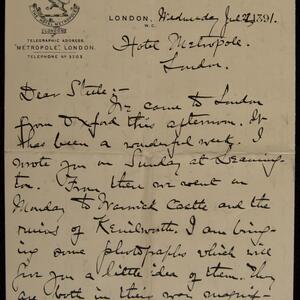 THE HOTEL METROPOLE
LONDON
TELEGRAPHIC ADDRESS,
"METROPOLE", LONDON.
TELEPHONE Nº 3203.
LONDON, Wednesday July 1891.
W.C.
Hotel Metropole.
London.
Dear Steele:-
We came to London
from Oxford this afternoon. It
has been a wonderful week. I
wrote you on Sunday at Leaming-
ton. From there we went on
Monday to Warwick Castle and the
ruins of Kenilworth. I am bring-
ing some photographs which will
give you a little idea of them. They
are both in their way magnifi-